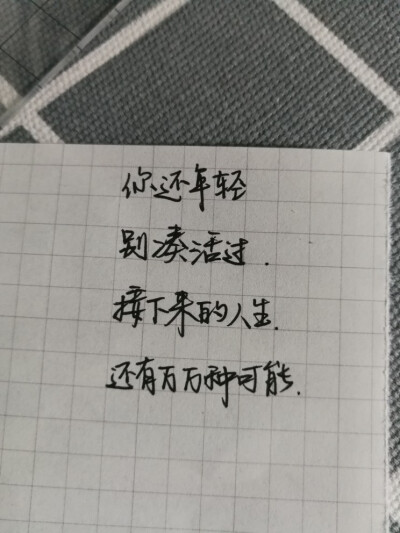 你还年轻
别凑活过.
接下来的人生.
还有万万种可能.